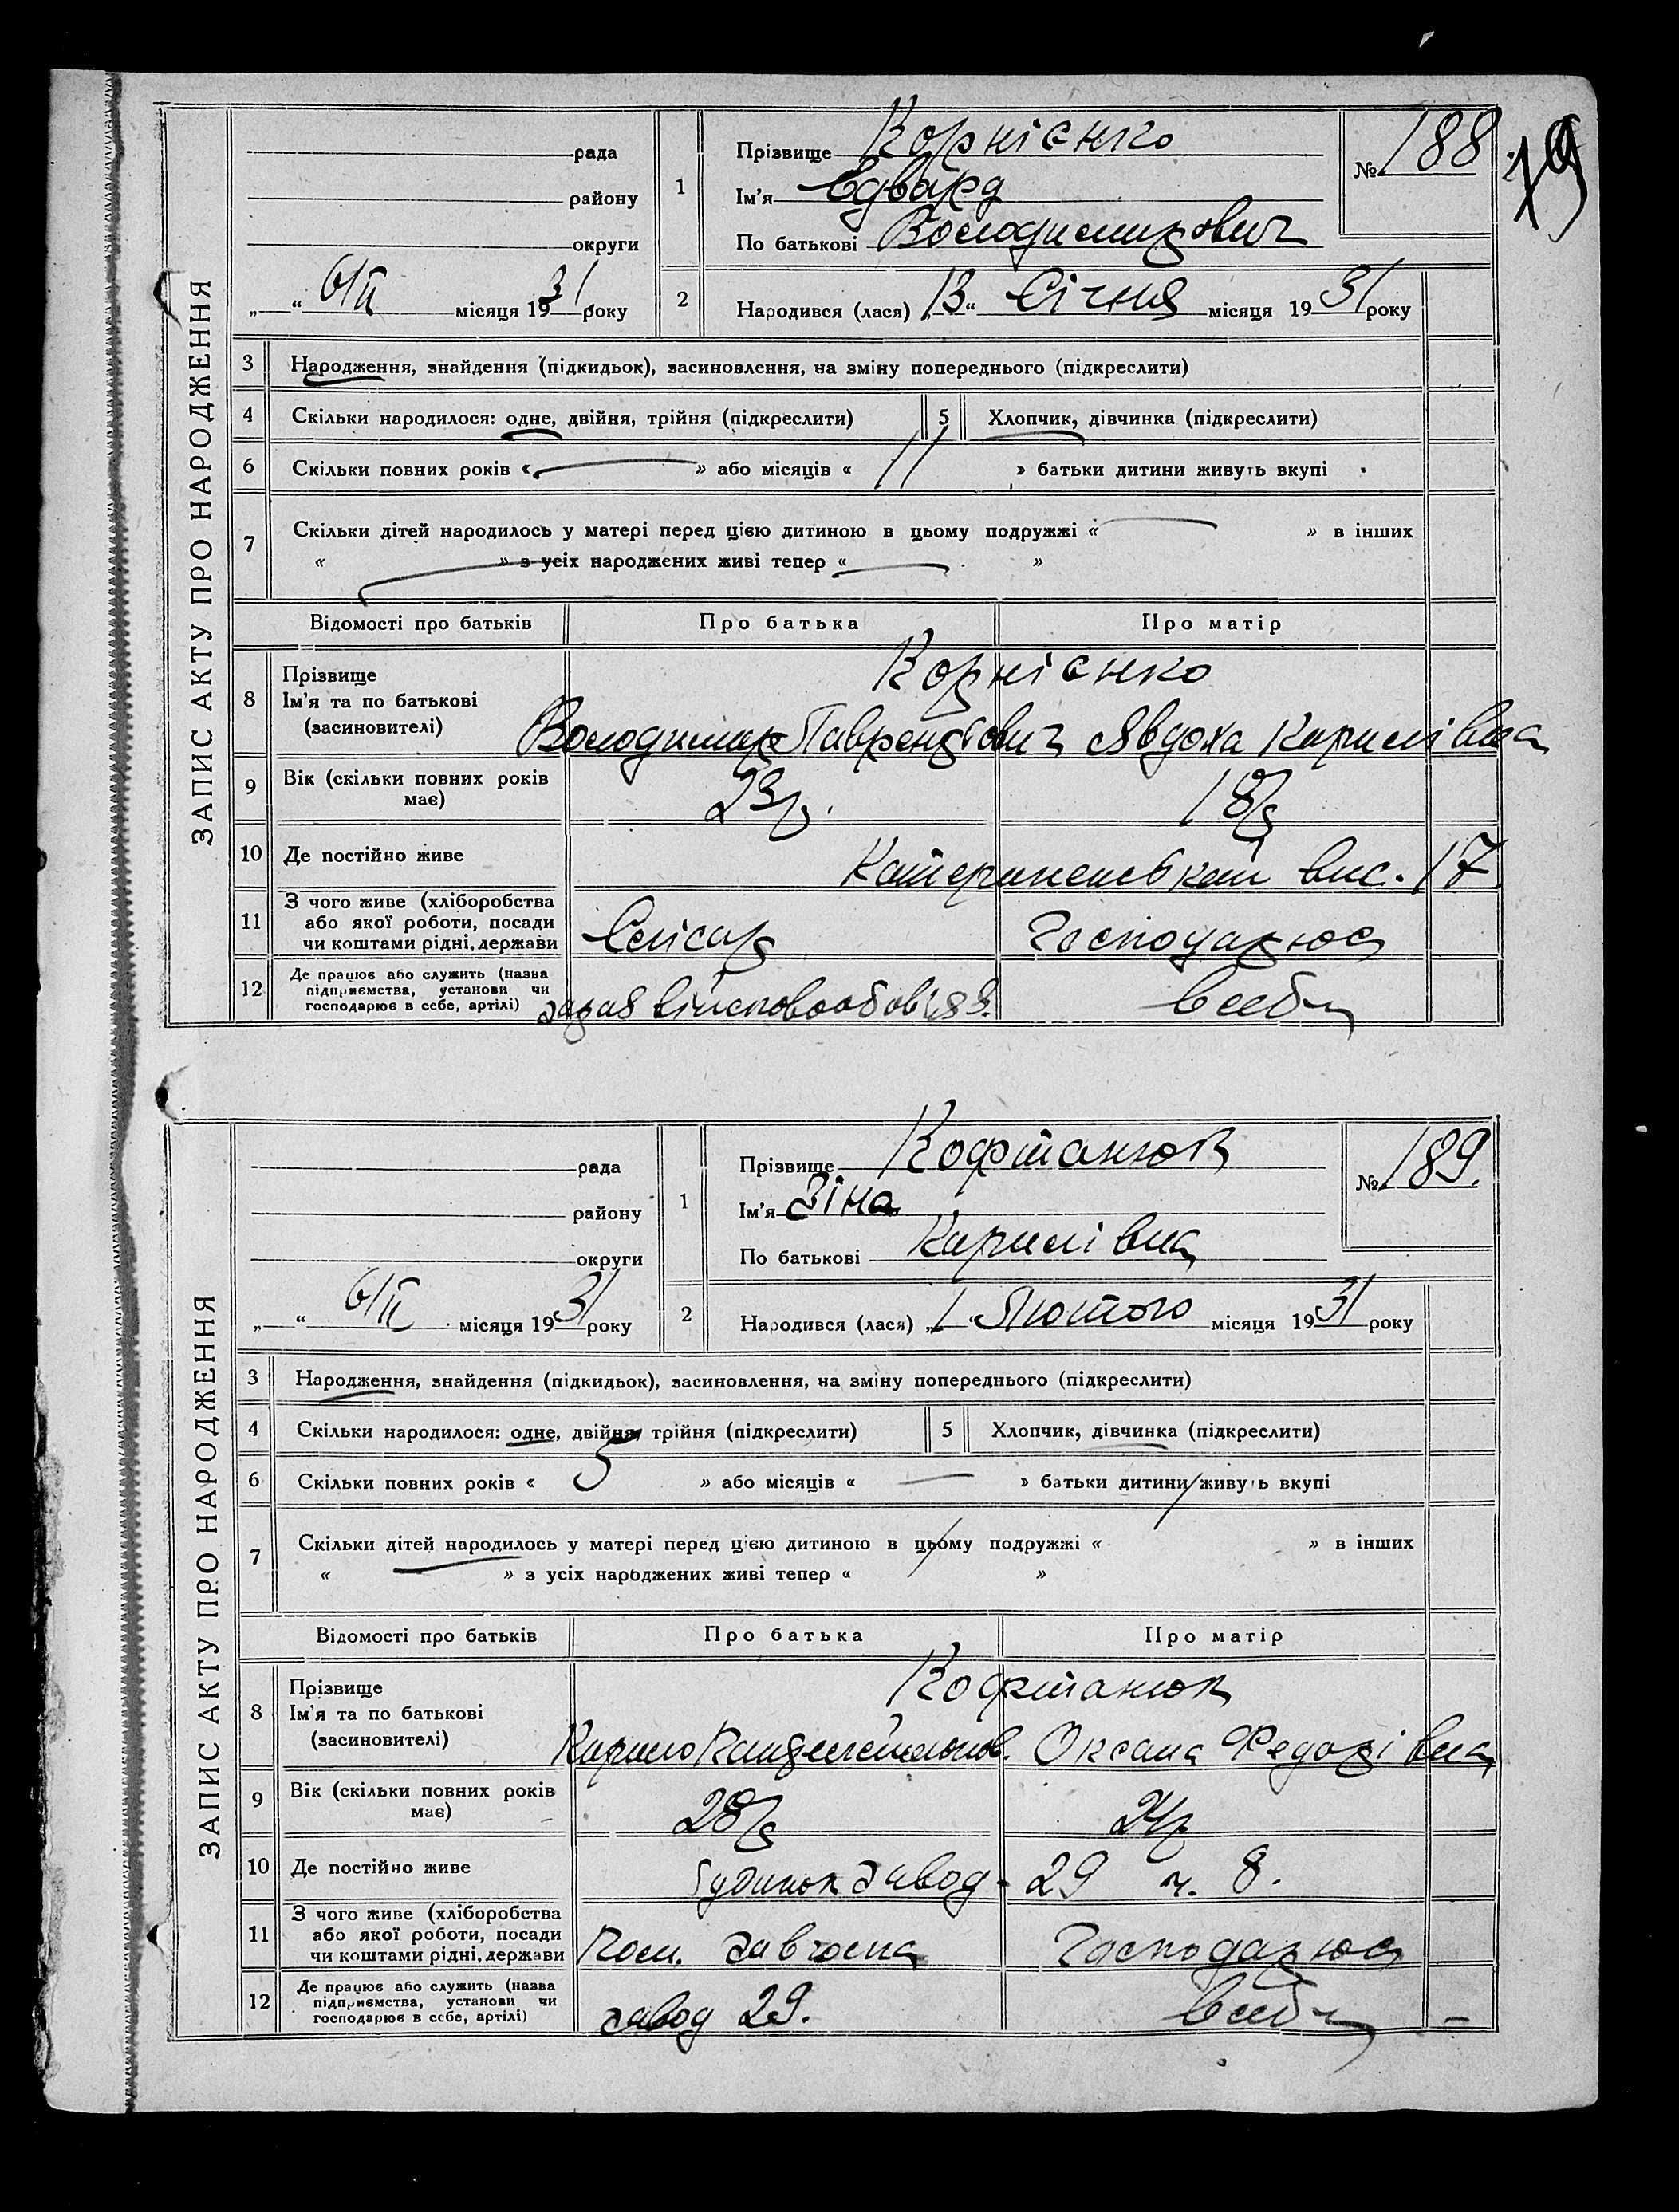 79
ЗАПИС АКТУ ПРО НАРОДЖЕННЯ
рада
району
округи
„ “ 6/ІІ місяця 1931 року
1 Прізвище Корнієнко
Ім'я Едвард
По батькові Володимирович
№ 188
2 Народився (лася) „13“ Січня місяця 1931 року
3 Народження, знайдення (підкидьок), засиновлення, на зміну попереднього (підкреслити)
4 Скільки народилося: одне, двійня, трійня (підкреслити) 5 Хлопчик, дівчинка (підкреслити)
6 Скільки повних років « — » або місяців « 11 » батьки дитини живуть вкупі
7 Скільки дітей народилось у матері перед цією дитиною в цьому подружжі « — » в інших
« — » з усіх народжених живі тепер « — »
Відомості про батьків Про батька Про матір
8 Прізвище Корнієнко
Ім'я та по батькові
(засновителі) Володимир Лаврентович Явдоха Кирилівна
9 Вік (скільки повних років має) 23р. 18р
10 Де постійно живе вис. 17
11 З чого живе (хліборобства або якої роботи, посади чи коштами рідні, держави Слюсар Господарює
12 Де працює або служить (назва підприємства, установи чи господарює в себе, артілі) в себе
ЗАПИС АКТУ ПРО НАРОДЖЕННЯ
рада
району
округи
„ “ 6/ІІ місяця 1931 року
1 Прізвище Кофтанюк
Ім'я Зіна
По батькові Кирилівна
№ 189.
2 Народився (лася) „1“ Лютого місяця 1931 року
3 Народження, знайдення (підкидьок), засиновлення, на зміну попереднього (підкреслити)
4 Скільки народилося: одне, двійня, трійня (підкреслити) 5 Хлопчик, дівчинка (підкреслити)
6 Скільки повних років « 5 » або місяців « — » батьки дитини живуть вкупі
7 Скільки дітей народилось у матері перед цією дитиною в цьому подружжі « » в інших
« — » з усіх народжених живі тепер « »
Відомості про батьків Про батька Про матір
8 Прізвище Кофтанюк
Ім'я та по батькові
(засиновителі) Кирило Оксана Федорівна
9 Вік (скільки повних років має) 28р 24р
10 Де постійно живе будинок завод. 29 ч. 8.
11 З чого живе (хліборобства або якої роботи, посади чи коштами рідні, держави Пом. завгоспа Господарює
12 Де працює або служить (назва підприємства, установи чи господарює в себе, артілі) завод 29. в себе –